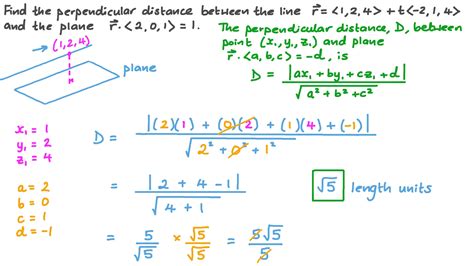 Find the perpendicular distance between the line r⃗ = <1, 2, 4> + t<-2, 1, 4>
and the plane r⃗ · <2, 0, 1> = 1.
The perpendicular distance, D, between
point (x₁, y₁, z₁) and plane
r⃗ · <a, b, c> = -d, is
D = |ax₁ + by₁ + cz₁ + d| / √(a² + b² + c²)
(1, 2, 4)
plane
x₁ = 1
y₁ = 2
z₁ = 4
a = 2
b = 0
c = 1
d = -1
D = |(2)(1) + (0)(2) + (1)(4) + (-1)| / √(2² + 0² + 1²)
= |2 + 4 - 1| / √(4 + 1)
= 5/√5 × √5/√5 = 5√5/5
√5 length units